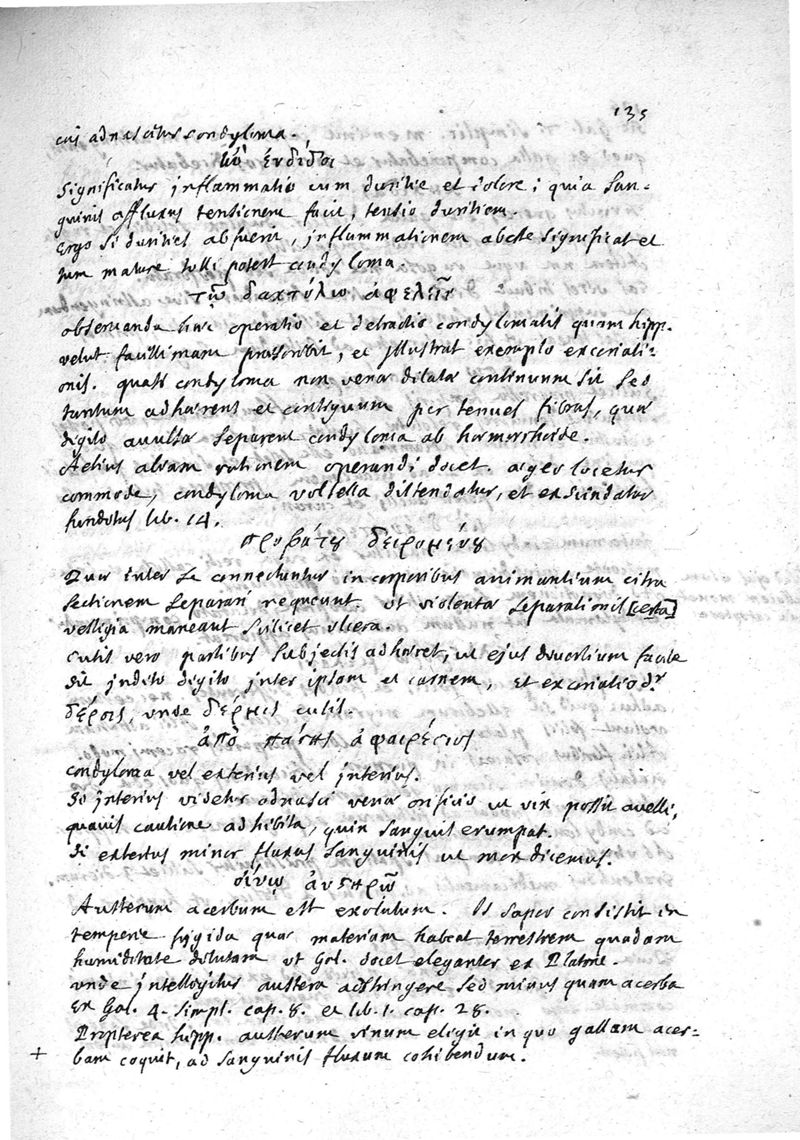 135
cui adnascitur condyloma.
ἐνδιδοῖ
Significatur inflammatio cum duritie et dolore; quia San-
guinis affluxus tensionem facit, tensio duritiem.
Ergo si durities abfuerit, inflammationem abesse significat et
tum mature tolli potest condyloma.
τῷ δακτύλῳ ἀφελεῖν
observanda hic operatio et detractio condylomatis quam hipp.
velut facillimam praescribit, et illustrat exemplo excoriati-
onis. quasi condyloma non venae dilatae continuum sit sed
tantum adhaerens et contiguum per tenues fibras, quae
digito avulsae separent condyloma ab haemorrhoide.
Aetius aliam rationem operandi docet. aeger locetur
commode, condyloma volsella distendatur, et exscindatur
funditus lib. 14.
προβάτου δειρομένου
Quae inter se connectuntur in corporibus animantium citra
sectionem separari nequeunt. ut violentae separationis [certa]
vestigia maneant scilicet ulcera.
Cutis vero partibus subjectis adhaeret, ut ejus divortium facile
sit indito digito inter ipsam et carnem, et excoriatio dr
δέρσις, unde δέρμις cutis.
ἀπὸ πάσης ἀφαιρέσιος
Condyloma vel exterius vel interius.
Si interius videtur adnasci venae orificio ut vix possit avelli,
quavis cautione adhibita, quin sanguis erumpat.
Si exterius minor fluxus sanguinis ut mox dicemus.
οἴνῳ αὐστηρῷ
Austerum acerbum est exolutum. Is sapor consistit in
temperie frigida quae materiam habeat terrestrem quadam
humiditate dilutam ut Gal. docet eleganter ex Platone.
unde intelligitur austera adstringere sed minus quam acerba
Ex Gal. 4. simpl. cap. 8. et lib. 1. cap. 28.
Propterea hipp. austerum vinum elegit in quo gallam acer-
+ bam coquit, ad sanguinis fluxum cohibendum.